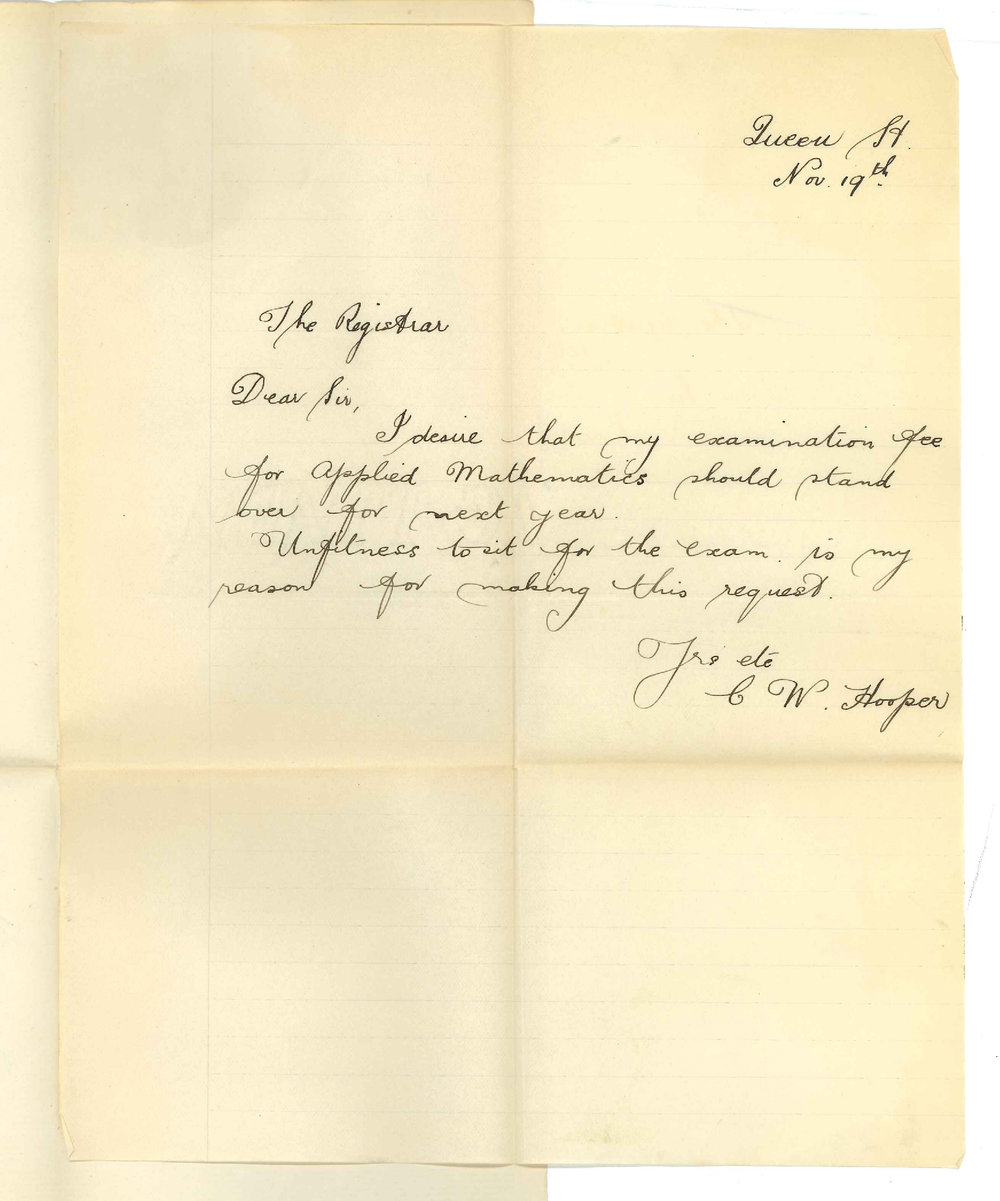 Queen St.
Nov. 19th
The Registrar
Dear Sir,
I desire that my examination fee
for Applied Mathematics should stand
over for next year.
Unfitness to sit for the exam. is my
reason for making this request.
Yrs etc
C W. Hooper